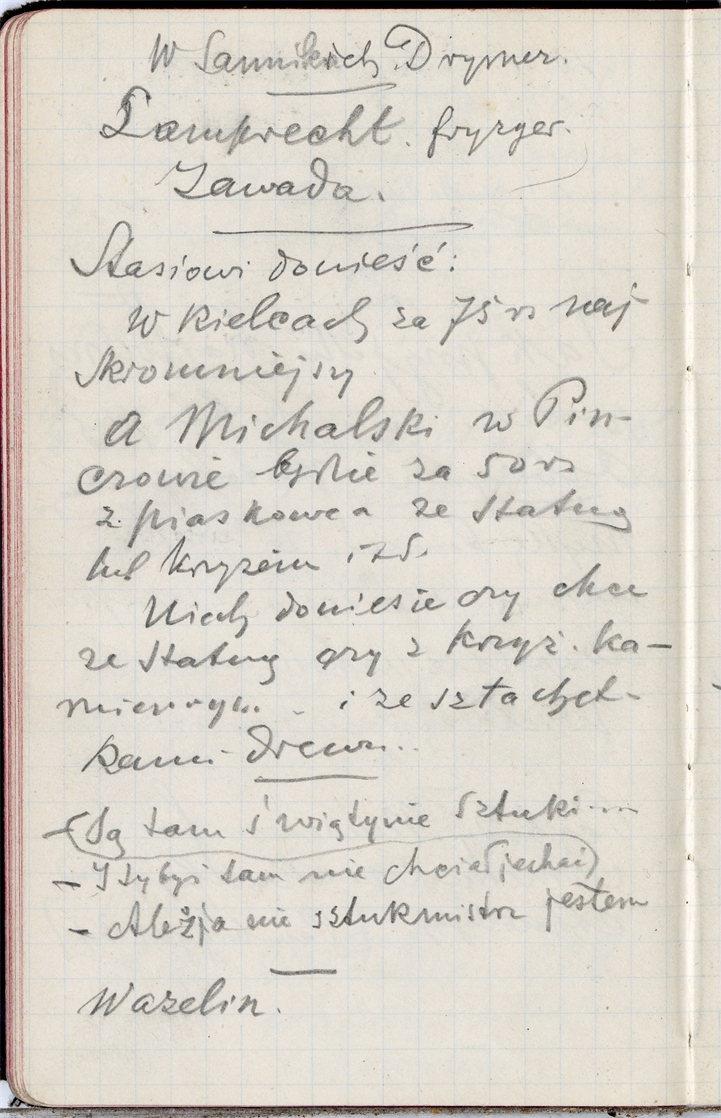 W Sannikach Drymer.
Lamprecht. fryzyer.
Zawada.
Stasiowi donieść:
w Kielcach za 75 rs naj
skromniejszy
A Michalski w Pin-
czowie będzie za 50 rs
z piaskowca ze statuą
lub krzyżem itd.
Niech doniesie czy chce
ze statuą czy z krzyż. ka-
miennym.. i ze sztachet-
kami drewn..
(Są tam świątynie sztuki....
- I tybyś tam nie chciał jechać)
- Ależ ja nie sztukmistrz jestem
Wazelin.